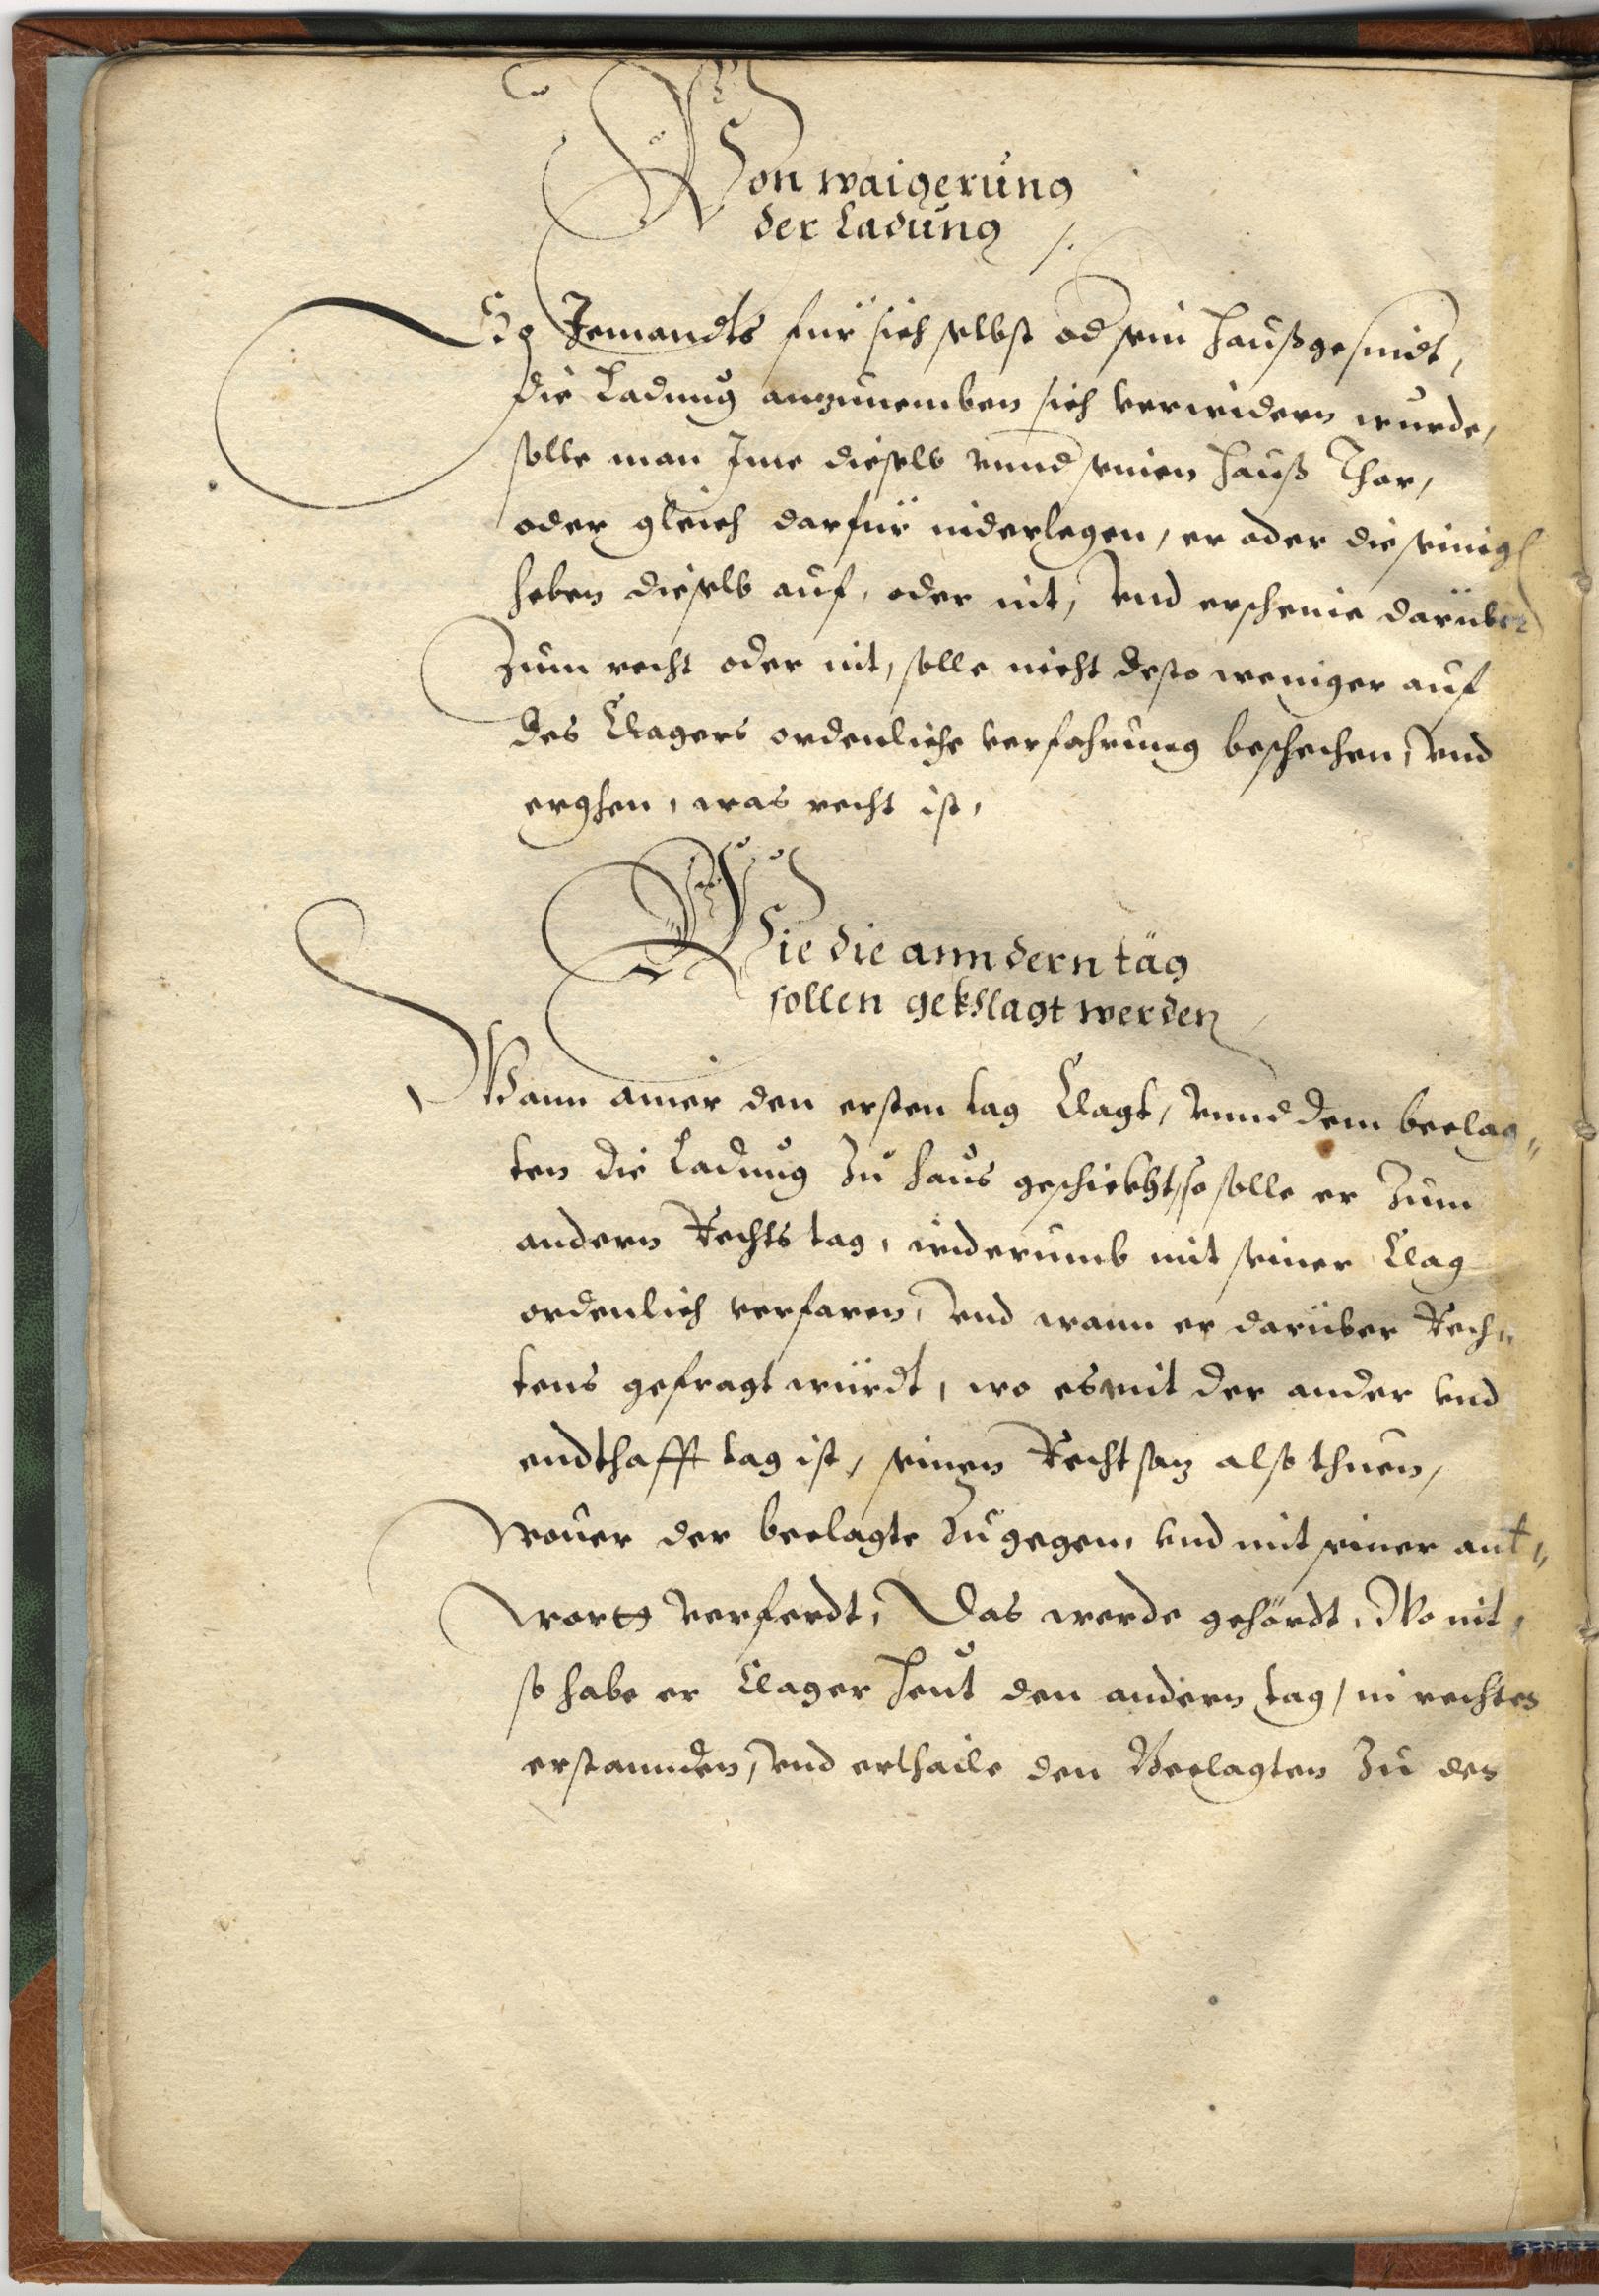 Von waigerung
der Ladung /.
Ob Jemandts für sich selbst od sein haußgesindt,
die Ladung anzunemben sich verwidern wurde,
solle man Jme dieselb unnd seinen Hauß Thor,
oder gleich darfür niderlegen, er oder die seinig
heben dieselb auf, oder nit, Vnd erscheine darüber
Zum recht oder nit, solle nicht desto weniger auf
des Clagers ordenliche verfahrung beschechen, Vnd
erghen, was recht ist,
Wie die anndern täg
sollen gekhlagt werden
Wann ainer den ersten tag Clagt, vnnd dem beclag„
ten die Ladung Zu haus geschickht, so solle er Zum
andern Rechts tag, widerumb mit seiner Clag
ordenlich verfaren, Vnd wann er darüber Rech„
tens gefragt würdt, wo es nit der ander vnd
endthafft tag ist, seinen Rechtsaz also thuen,
Wouer der beclagte Zugegen, vnd mit seiner ant„
wortt verferdt, Das werde gehördt, Wo nit,
so habe er Clager heut den andern tag, in rechten
erstannden, Vnd erthaile den Beclagten Zu den